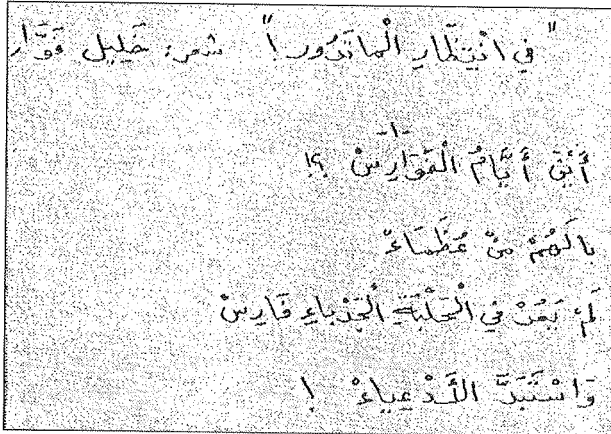 "في انْتِظَارِ الْمَاتَدُور!" شعر: خَلِيل فَوَّار
-١-
أَيْنَ أَيَّامُ الْفَوَارِسْ ؟!
يالَهُمْ مِنْ عُظَمَاءْ
لَمْ يَعُدْ في الْحَلْبَةِ الْجَدْباءِ فَارِسْ
وَاسْتَبَدَّ الأَدْعِياءْ !